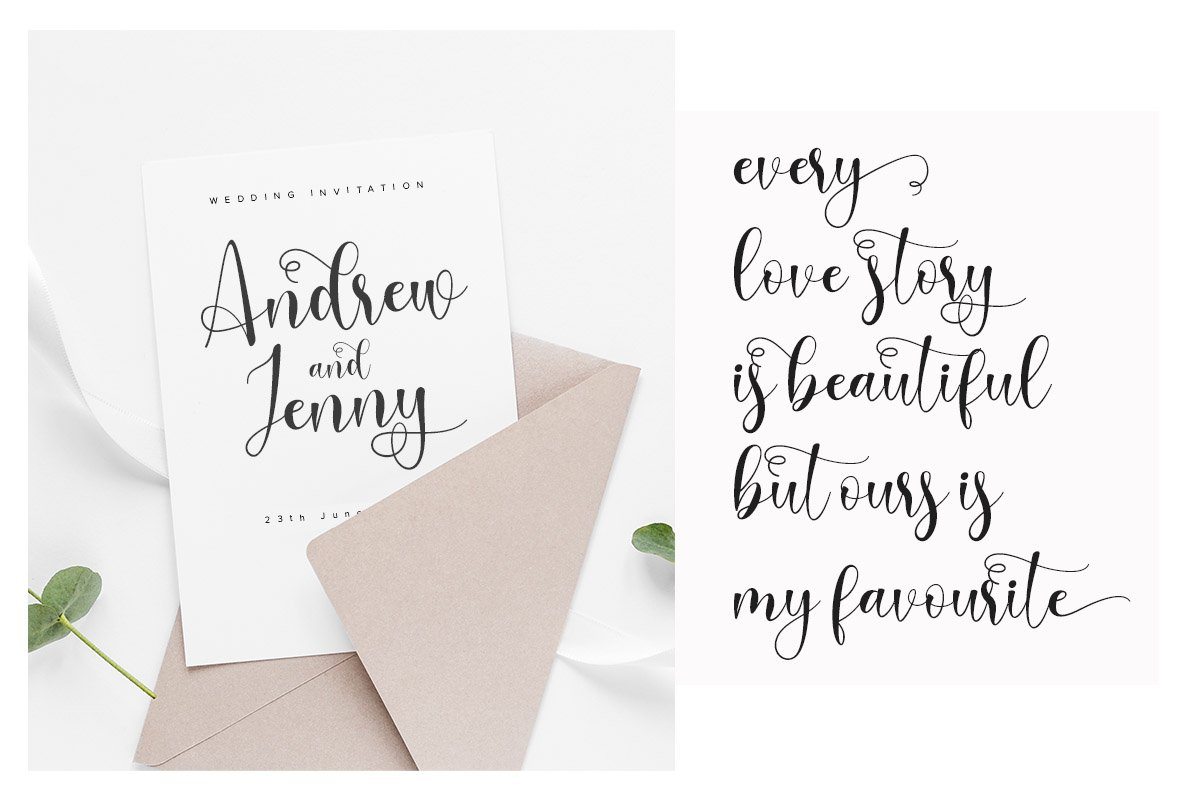 WEDDING INVITATION
Andrew
and
Jenny
23th June
every
love story
is beautiful
but ours is
my favourite